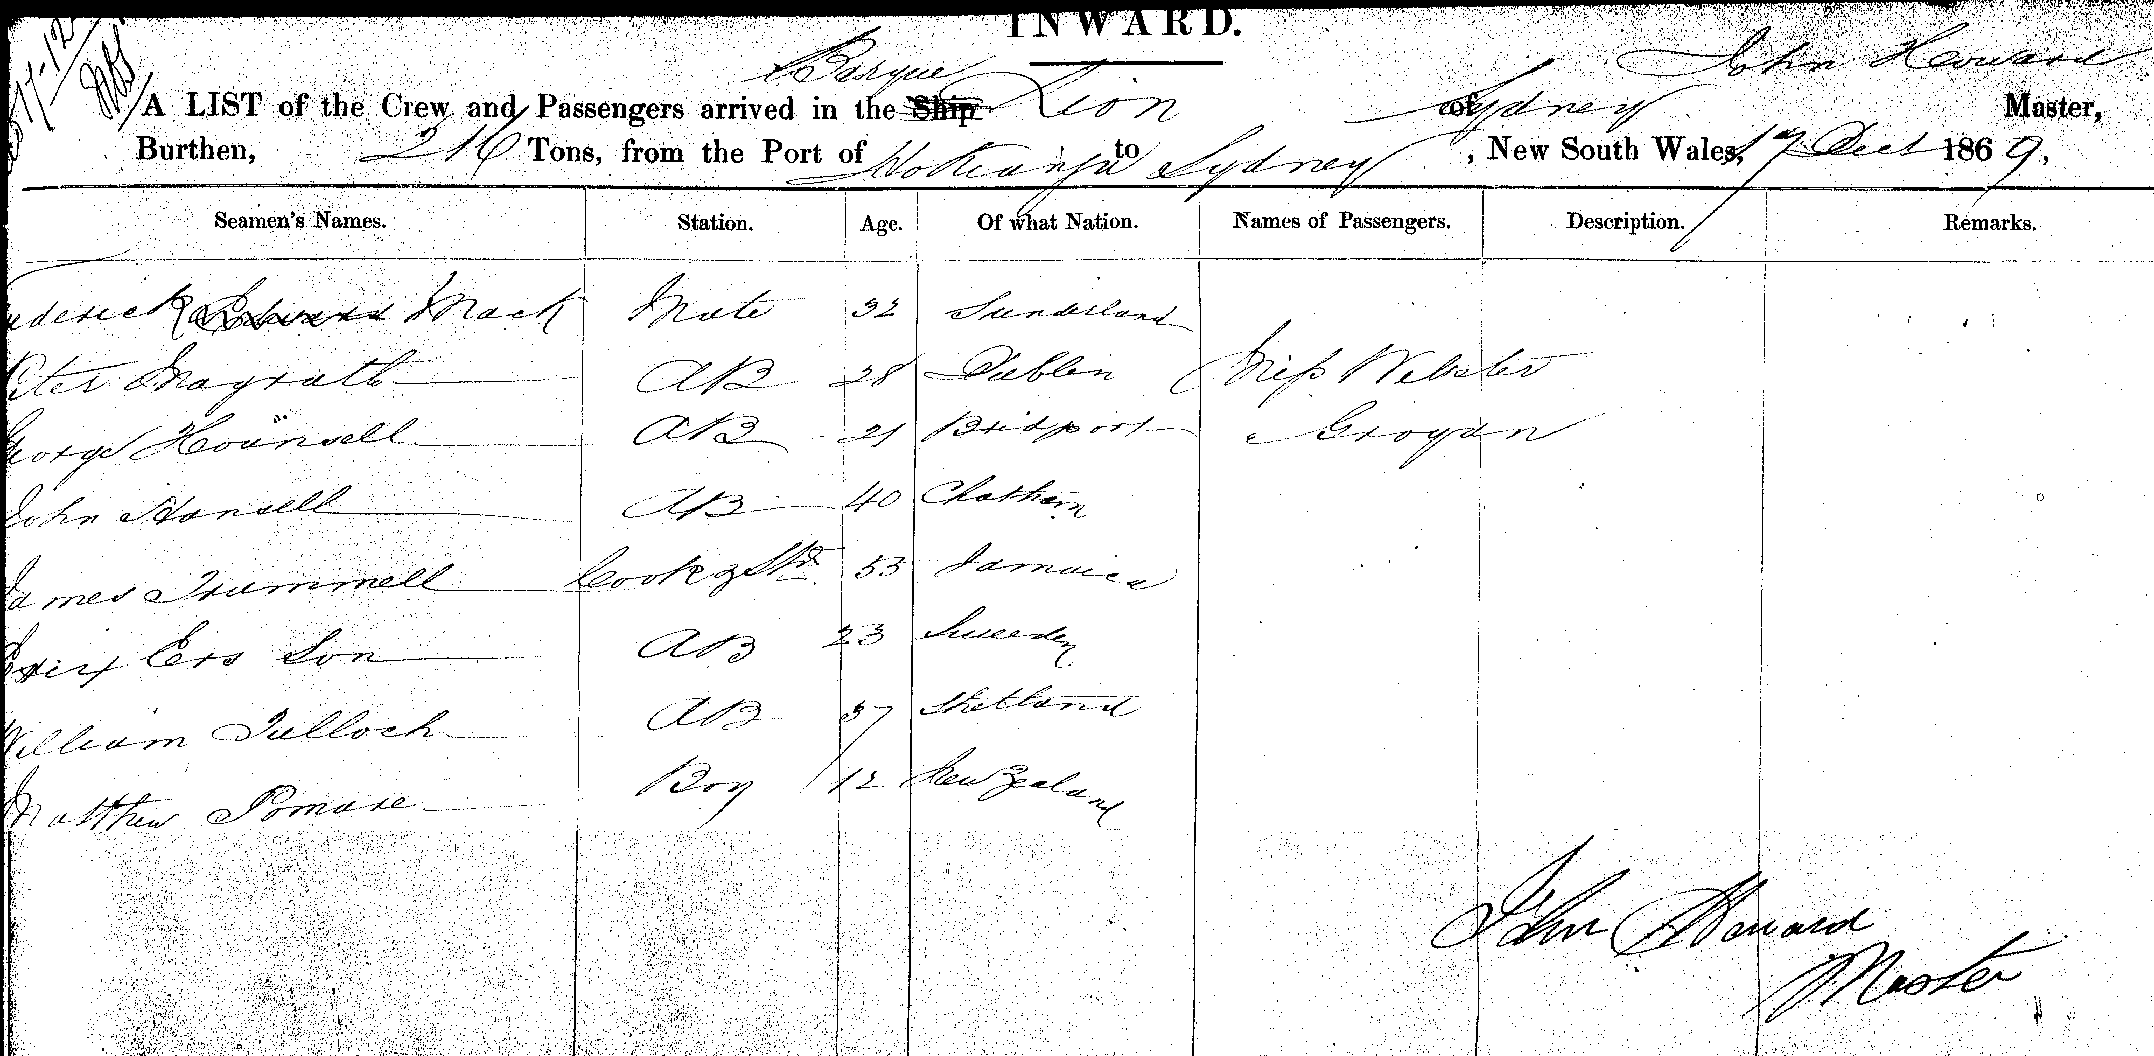 INWARD.
Barque John Howard
A LIST of the Crew and Passengers arrived in the Ship Lion of Sydney Master,
Burthen, 216 Tons, from the Port of Hokianga to Sydney, New South Wales, 17 Dect 1869,
Seamen's Names. Station. Age. Of what Nation. Names of Passengers. Description. Remarks.
ederick Edward Mack Mate 32 Sunderland
Peter Magrath AB 28 Dublin Miss Webster
George Hounsell AB 21 Bridport " Grogan
John Hansell AB 40 Chatham
James Trummell Cook & Std 53 Jamaica
Ers Son AB 23 Sweeden
William Tulloch AB 37 Shetland
Matthew Pomare Boy 12 New Zealand
John Howard
Master